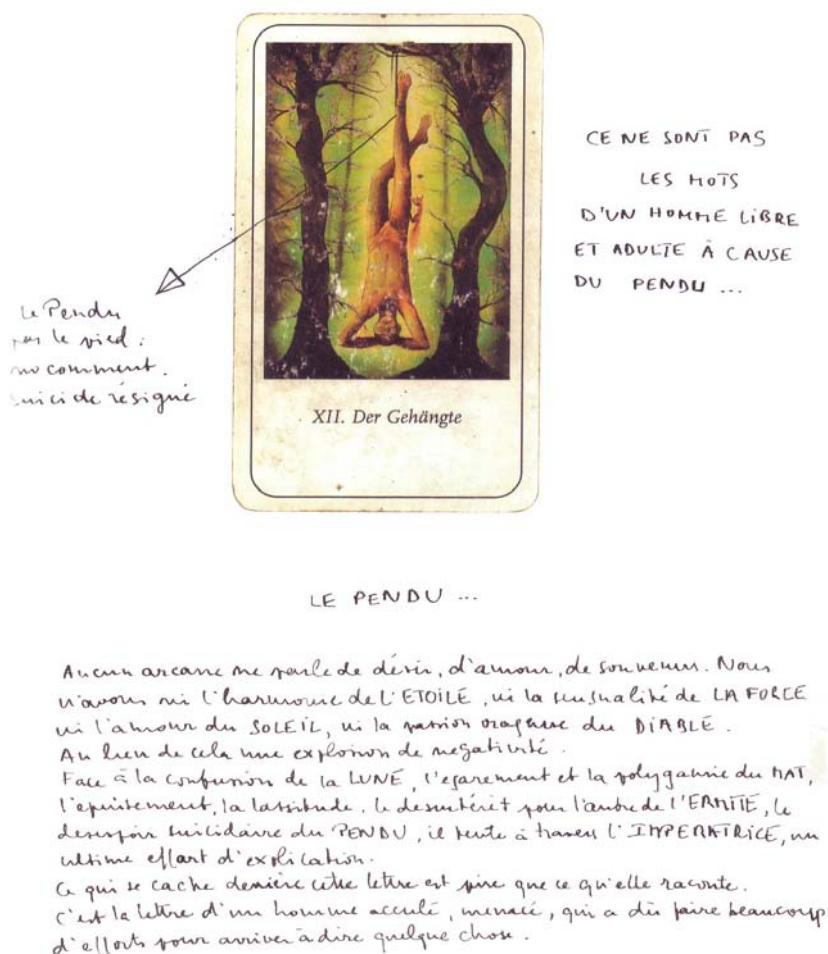 CE NE SONT PAS
LES MOTS
D'UN HOMME LIBRE
ET ADULTE À CAUSE
DU PENDU ...
Le Pendu
par le pied :
no comment.
suicide résigné
XII. Der Gehängte
LE PENDU ...
Aucun arcane ne parle de désir, d'amour, de souvenirs. Nous
n'avons ni l'harmonie de L'ETOILE, ni la sensualité de LA FORCE
ni l'amour du SOLEIL, ni la passion orageuse du DIABLE.
Au lieu de cela une explosion de negativité.
Face à la confusion de la LUNE, l'egarement et la polygamie du MAT,
l'epuisement, la lassitude, le desintérêt pour l'autre de l'ERMITE, le
desespoir suicidaire du PENDU, il tente à travers L'IMPERATRICE, un
ultime effort d'explication.
Ce qui se cache derrière cette lettre est pire que ce qu'elle raconte.
C'est la lettre d'un homme acculé, menacé, qui a dû faire beaucoup
d'efforts pour arriver à dire quelque chose.